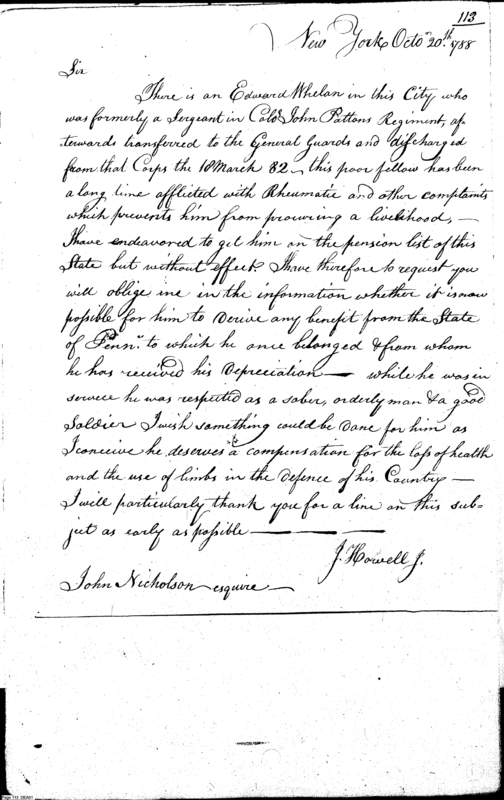 113
New York Octo.r 20.th 1788
Sir
There is an Edward Whelan in this City who
was formerly a Sergeant in Colo. John Pattons Regiment, af
terwards transferred to the General Guards and discharged
from that Corps the 18 March 82 – this poor fellow has been
a long time afflicted with Rheumatic and other complaints
which prevents him from procuring a livelihood, –
I have endeavored to get him on the pension list of this
State but without effect. I have therefore to request you
will oblige me in the information whether it is now
possible for him to derive any benefit from the State
of Penn.a to which he once belonged & from whom
he has received his Depreciation – while he was in
service he was respected as a sober, orderly man & a good
Soldier I wish something could be done for him as
I conceive he deserves a compensation for the loss of health
and the use of limbs in the defence of his Country –
I will particularly thank you for a line on this sub=
ject as early as possible – – –
J. Howell J.
John Nicholson esquire –